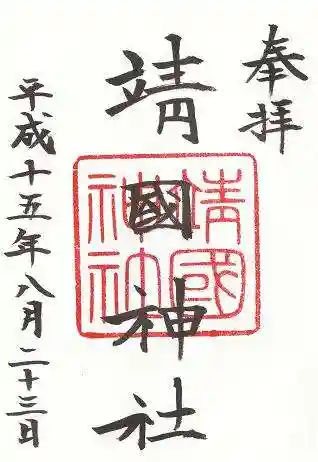 奉拝
靖國神社
靖國
神社
平成十五年八月二十三日